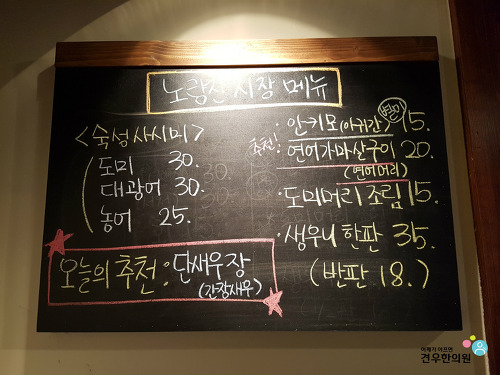 노량진 시장 메뉴
<숙성사시미>
도미 30.
대광어 30.
농어 25.
오늘의 추천 : 단새우장
(간장새우)
· 안키모(아귀간) 15.
추천! · 연어가마살구이 20.
(연어머리)
· 도미머리 조림 15.
· 생우니 한판 35.
(반판 18.)
어깨가 아프면
견우한의원